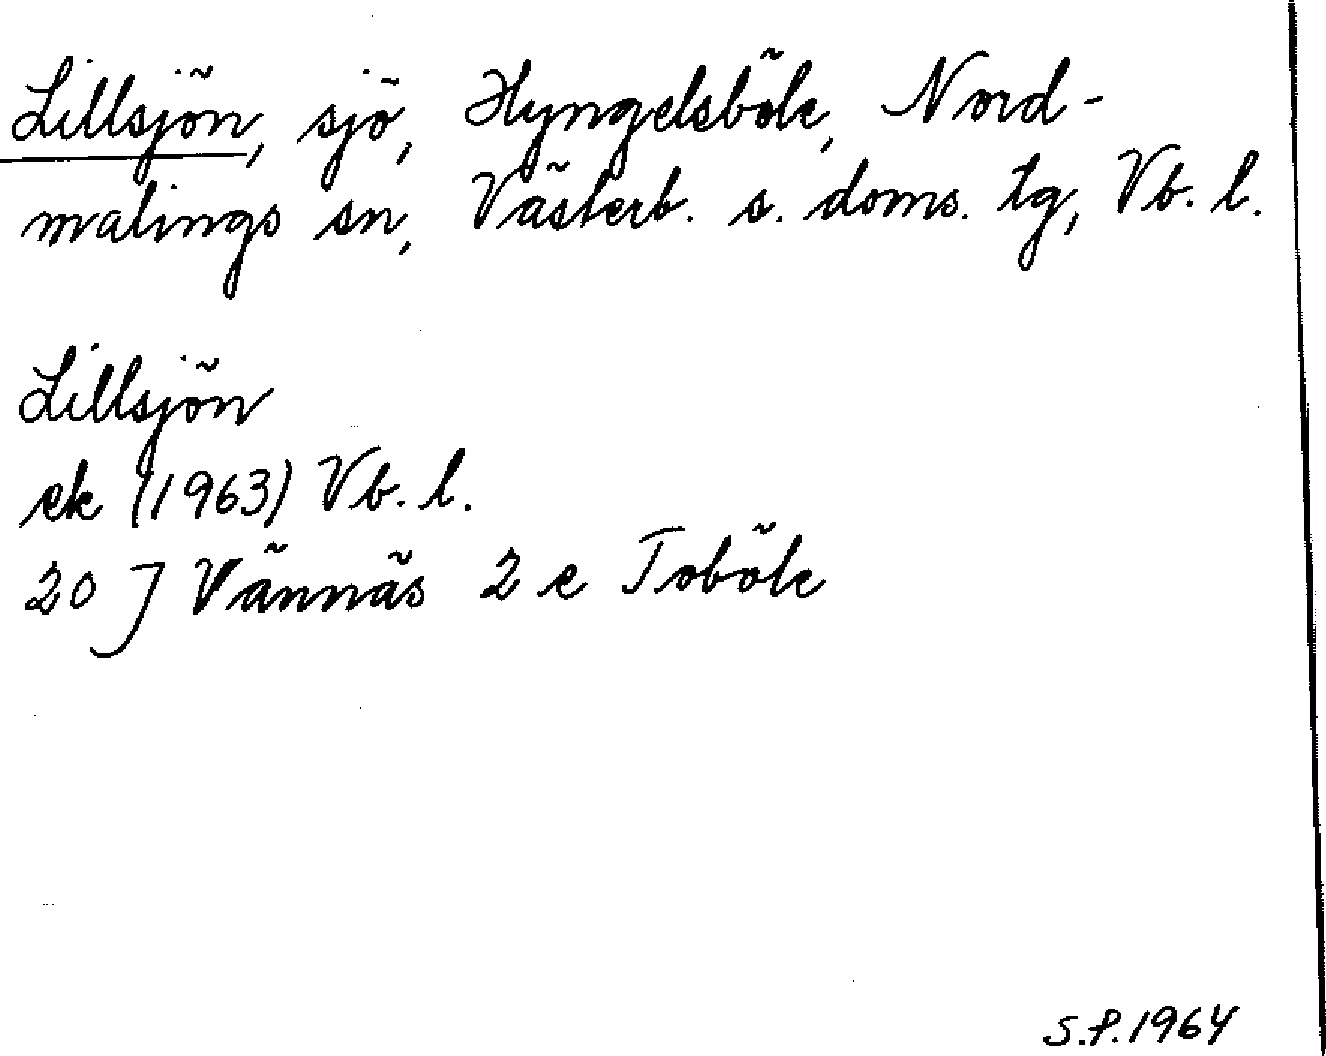 Lillsjön, sjö, Hyngelsböle, Nord-
malings sn, Västerb. s. doms. tg, Vb. l.
Lillsjön
ek (1963) Vb. l.
20 J Vännäs 2 e Toböle
S.P.1964